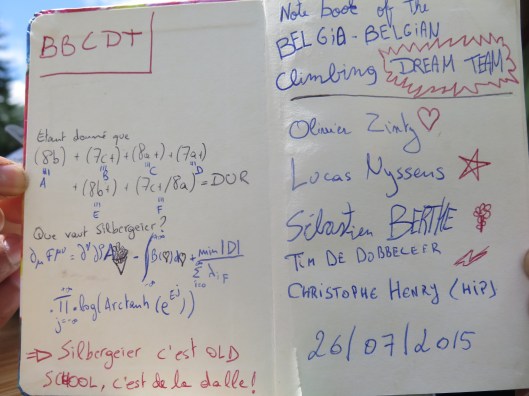 BBCDT
Etant donné que
(8b) + (7c+) + (8a+) + (7a+)
A B C D
+ (8b+) + (7c+/8a) = DUR
E F
Que vaut Silbergeier ?
⇒ Silbergeier c'est OLD
SCHOOL, c'est de la dalle !
Note book of the
BELGIA-BELGIAN
Climbing DREAM TEAM
Olivier Zintz
Lucas Nyssens
Sébastien BERTHE
TIM DE DOBBELEER
CHRISTOPHE HENRY (HiP)
26/07/2015